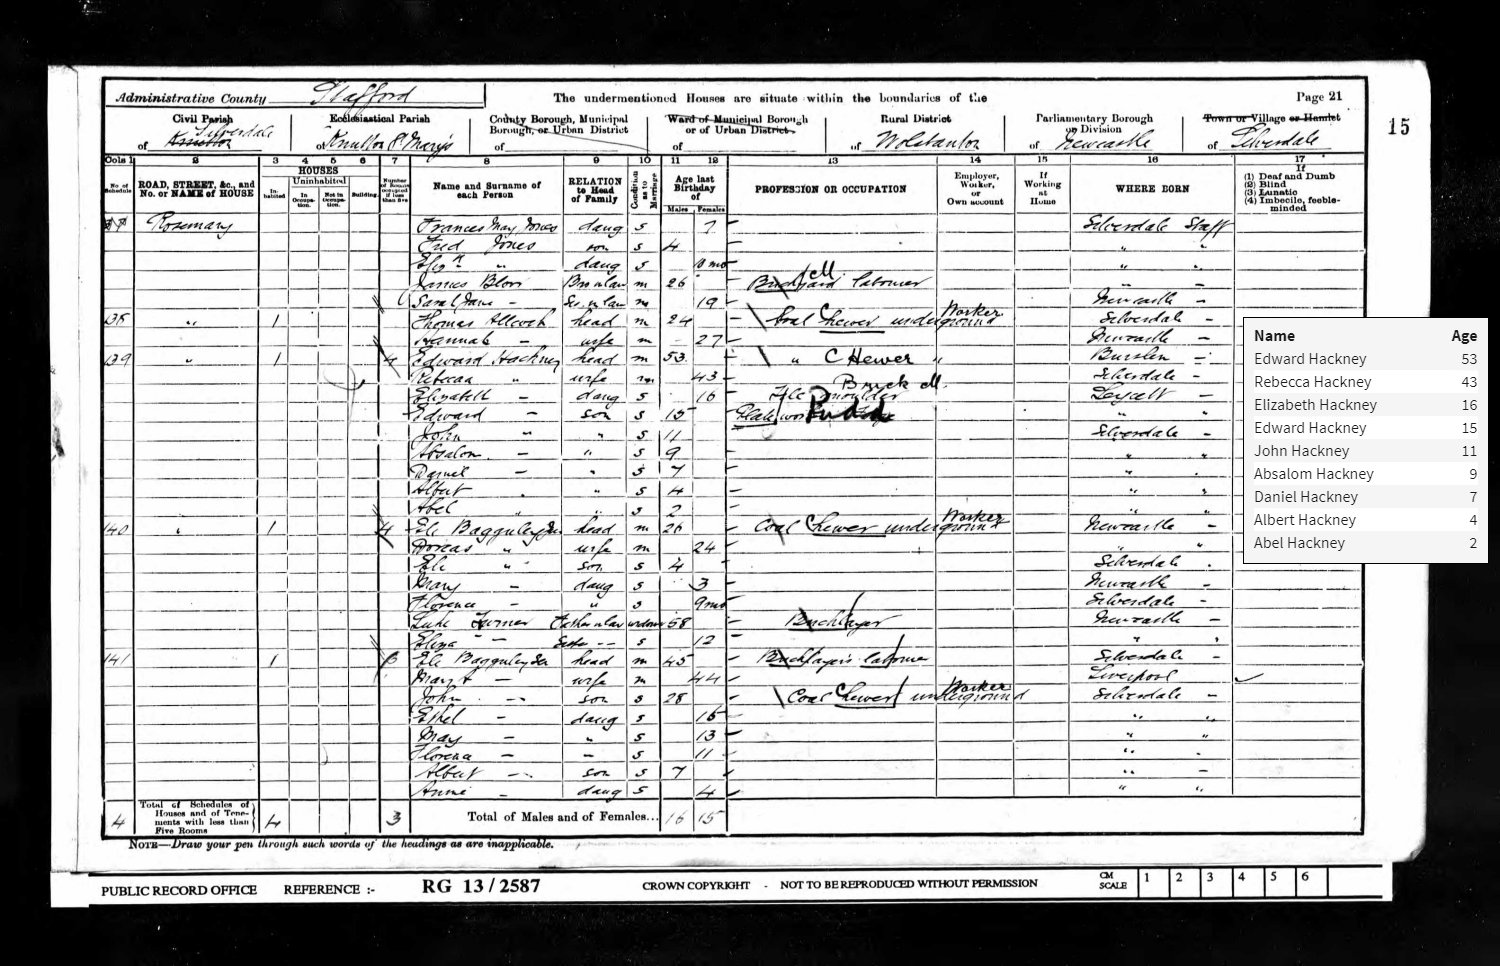 Administrative County Stafford
The undermentioned Houses are situate within the boundaries of the
Page 21
15
Civil Parish
of Knutton Silverdale
Ecclesiastical Parish
of Knutton St Mary's
County Borough, Municipal
Borough, or Urban District
of
Ward of Municipal Borough
or of Urban District
of
Rural District
of Wolstanton
Parliamentary Borough
or Division
of Newcastle
Town or Village or Hamlet
of Silverdale
Cols 1 2 3 4 5 6 7 8 9 10 11 12 13 14 15 16 17
No. of Schedule
ROAD, STREET, &c., and
No. or NAME of HOUSE
HOUSES
Inhabited
Uninhabited
In Occupation.
Not in Occupation.
Building
Number of Rooms occupied if less than five
Name and Surname of
each Person
RELATION
to Head
of Family
Condition as to Marriage
Age last
Birthday
of
Males Females
PROFESSION OR OCCUPATION
Employer,
Worker,
or
Own account
If
Working
at
Home
WHERE BORN
If
(1) Deaf and Dumb
(2) Blind
(3) Lunatic
(4) Imbecile, feeble-
minded
Rosemary Frances May Jones daug S 7 — Silverdale Staff
Fred Jones son S 4 — " "
Eliz " daug S mo — " "
James Blor Bro in law m 26 Brickyard labourer " —
Sarah Jane — Sis in law m 19 — Newcastle —
138 " 1 Thomas head m 24 Coal Hewer underground Worker Silverdale —
Hannah — wife m 27 — Newcastle —
139 " 1 4 Edward Hackney head m 53 " Hewer " Burslem —
Rebecca " wife m 43 — Silverdale —
Elizabeth — daug S 16 Tile Moulder Brick M.
Edward — son S 15 " "
John " " S 11 Silverdale —
Absalom — " S 9 — " "
Daniel — " S 7 — "
Albert " S 4 — " "
Abel " " S 2 — " "
140 " 1 4 Eli Bagguley Jun head m 26 Coal Hewer underground Worker Newcastle —
Dorcas " wife m 24 — " "
Eli " son S 4 — Silverdale
Mary — daug S 3 — Newcastle —
Florence — " S 9 mo Silverdale —
Luke Turner Father in law widower 58 Bricklayer Newcastle —
Eliza — Sister — — S 12 — " "
141 1 Eli Bagguley Sen head m 45 — Bricklayer's labourer Silverdale —
Mary A — wife m 44 — Liverpool
John — son S 28 — Coal Hewer underground Worker Silverdale —
Ethel — daug S 15 — " "
May — " S 13 — " "
Florence — — S 11 — " —
Albert — son S 7 — " —
Annie — daug S 4 — " "
4
Total of Schedules of
Houses and of Tene-
ments with less than
Five Rooms
4
3
Total of Males and of Females... 16 15
NOTE—Draw your pen through such words of the headings as are inapplicable.
PUBLIC RECORD OFFICE REFERENCE :- RG 13 / 2587 CROWN COPYRIGHT - NOT TO BE REPRODUCED WITHOUT PERMISSION
CM
SCALE
1 2 3 4 5 6
Name Age
Edward Hackney 53
Rebecca Hackney 43
Elizabeth Hackney 16
Edward Hackney 15
John Hackney 11
Absalom Hackney 9
Daniel Hackney 7
Albert Hackney 4
Abel Hackney 2